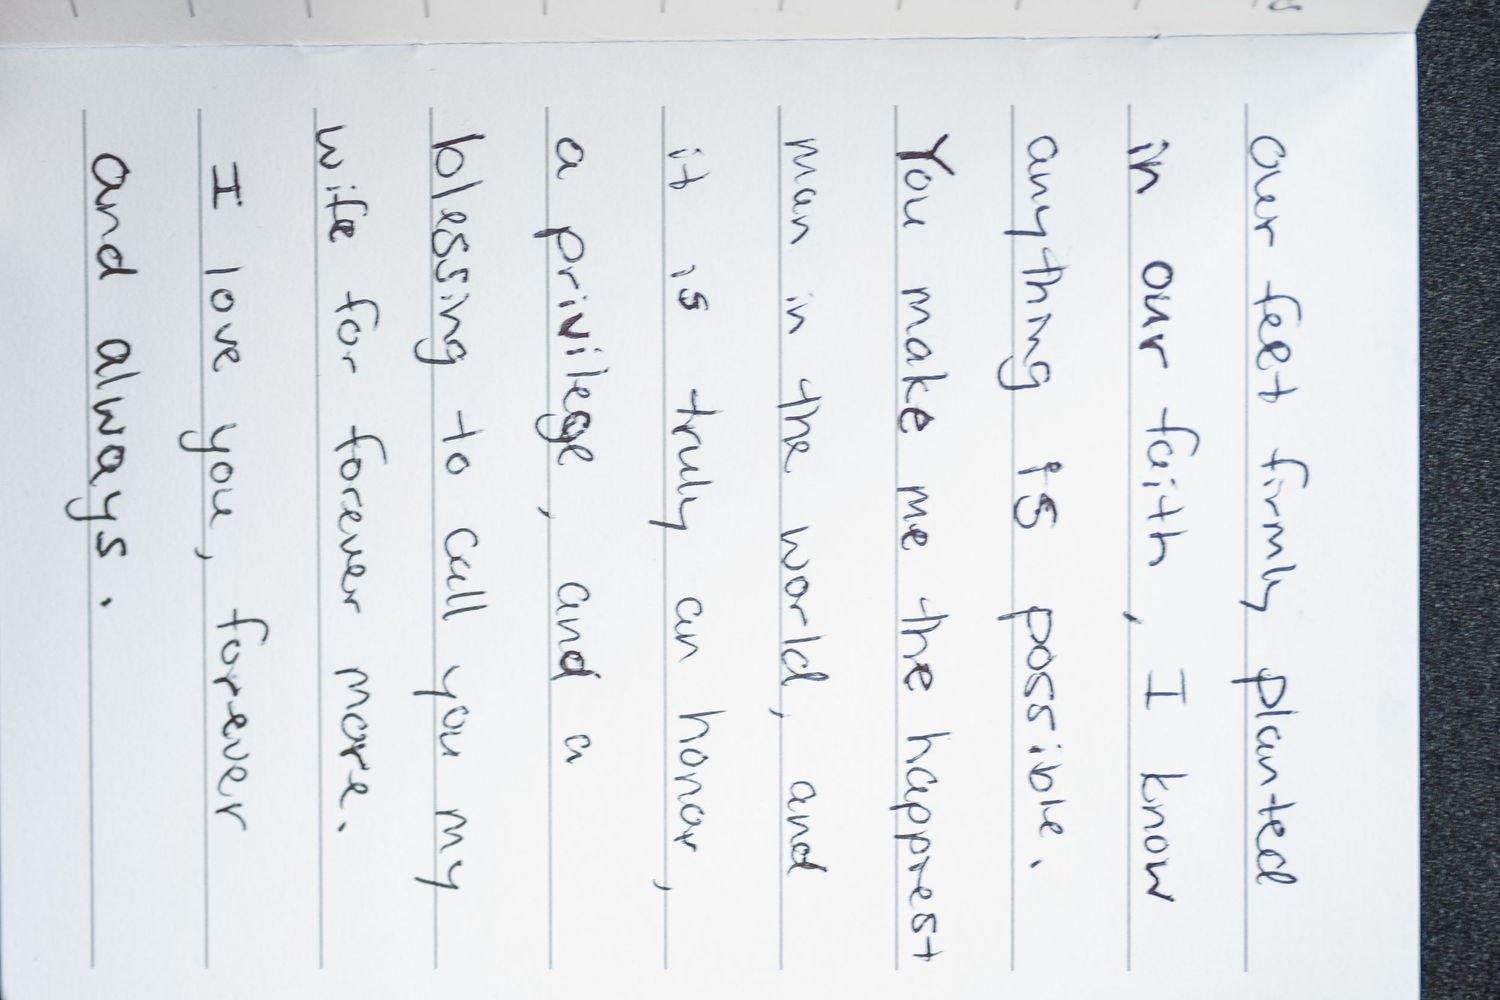 our feet firmly planted
in our faith, I know
anything is possible.
You make me the happiest
man in the world, and
it is truly an honor,
a privilege, and a
blessing to call you my
wife for forever more.
I love you, forever
and always.